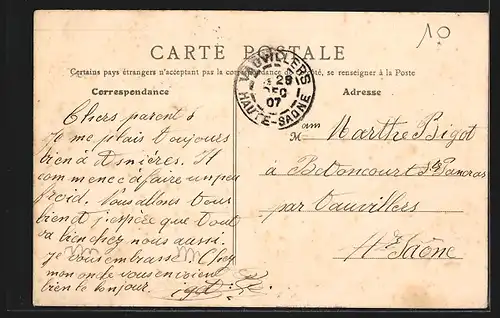 10
CARTE POSTALE
Certains pays étrangers n'acceptant pas la correspondance de ce côté, se renseigner à la Poste
VAUVILLERS
28
DEC
07
HAUTE-SAONE
Correspondance
Chers parents
Je me plais toujours
bien à Asnières. Il
commence à faire un peu
froid. Nous allons tous
bien et j'espère que tout
va bien chez nous aussi.
je vous embrasse Chez
mon onde vous envoien
bien le bonjour.
Adresse
Mam Marthe Bigot
à Betoncourt St Pancras
par Vauvillers
Hte Saône